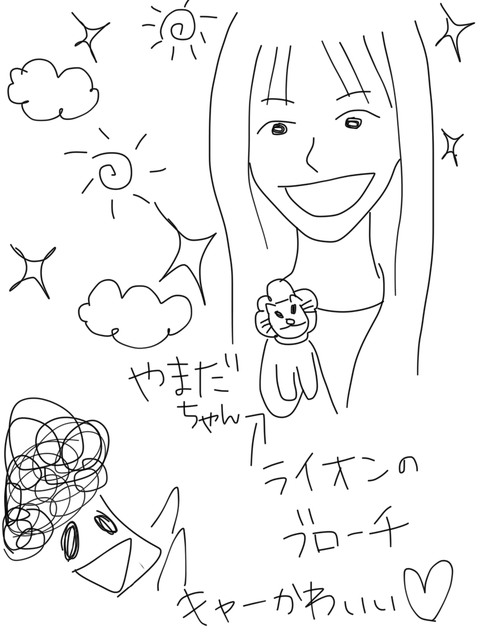 やまだ
ちゃん
ライオンの
ブローチ
キャーかわいい♡